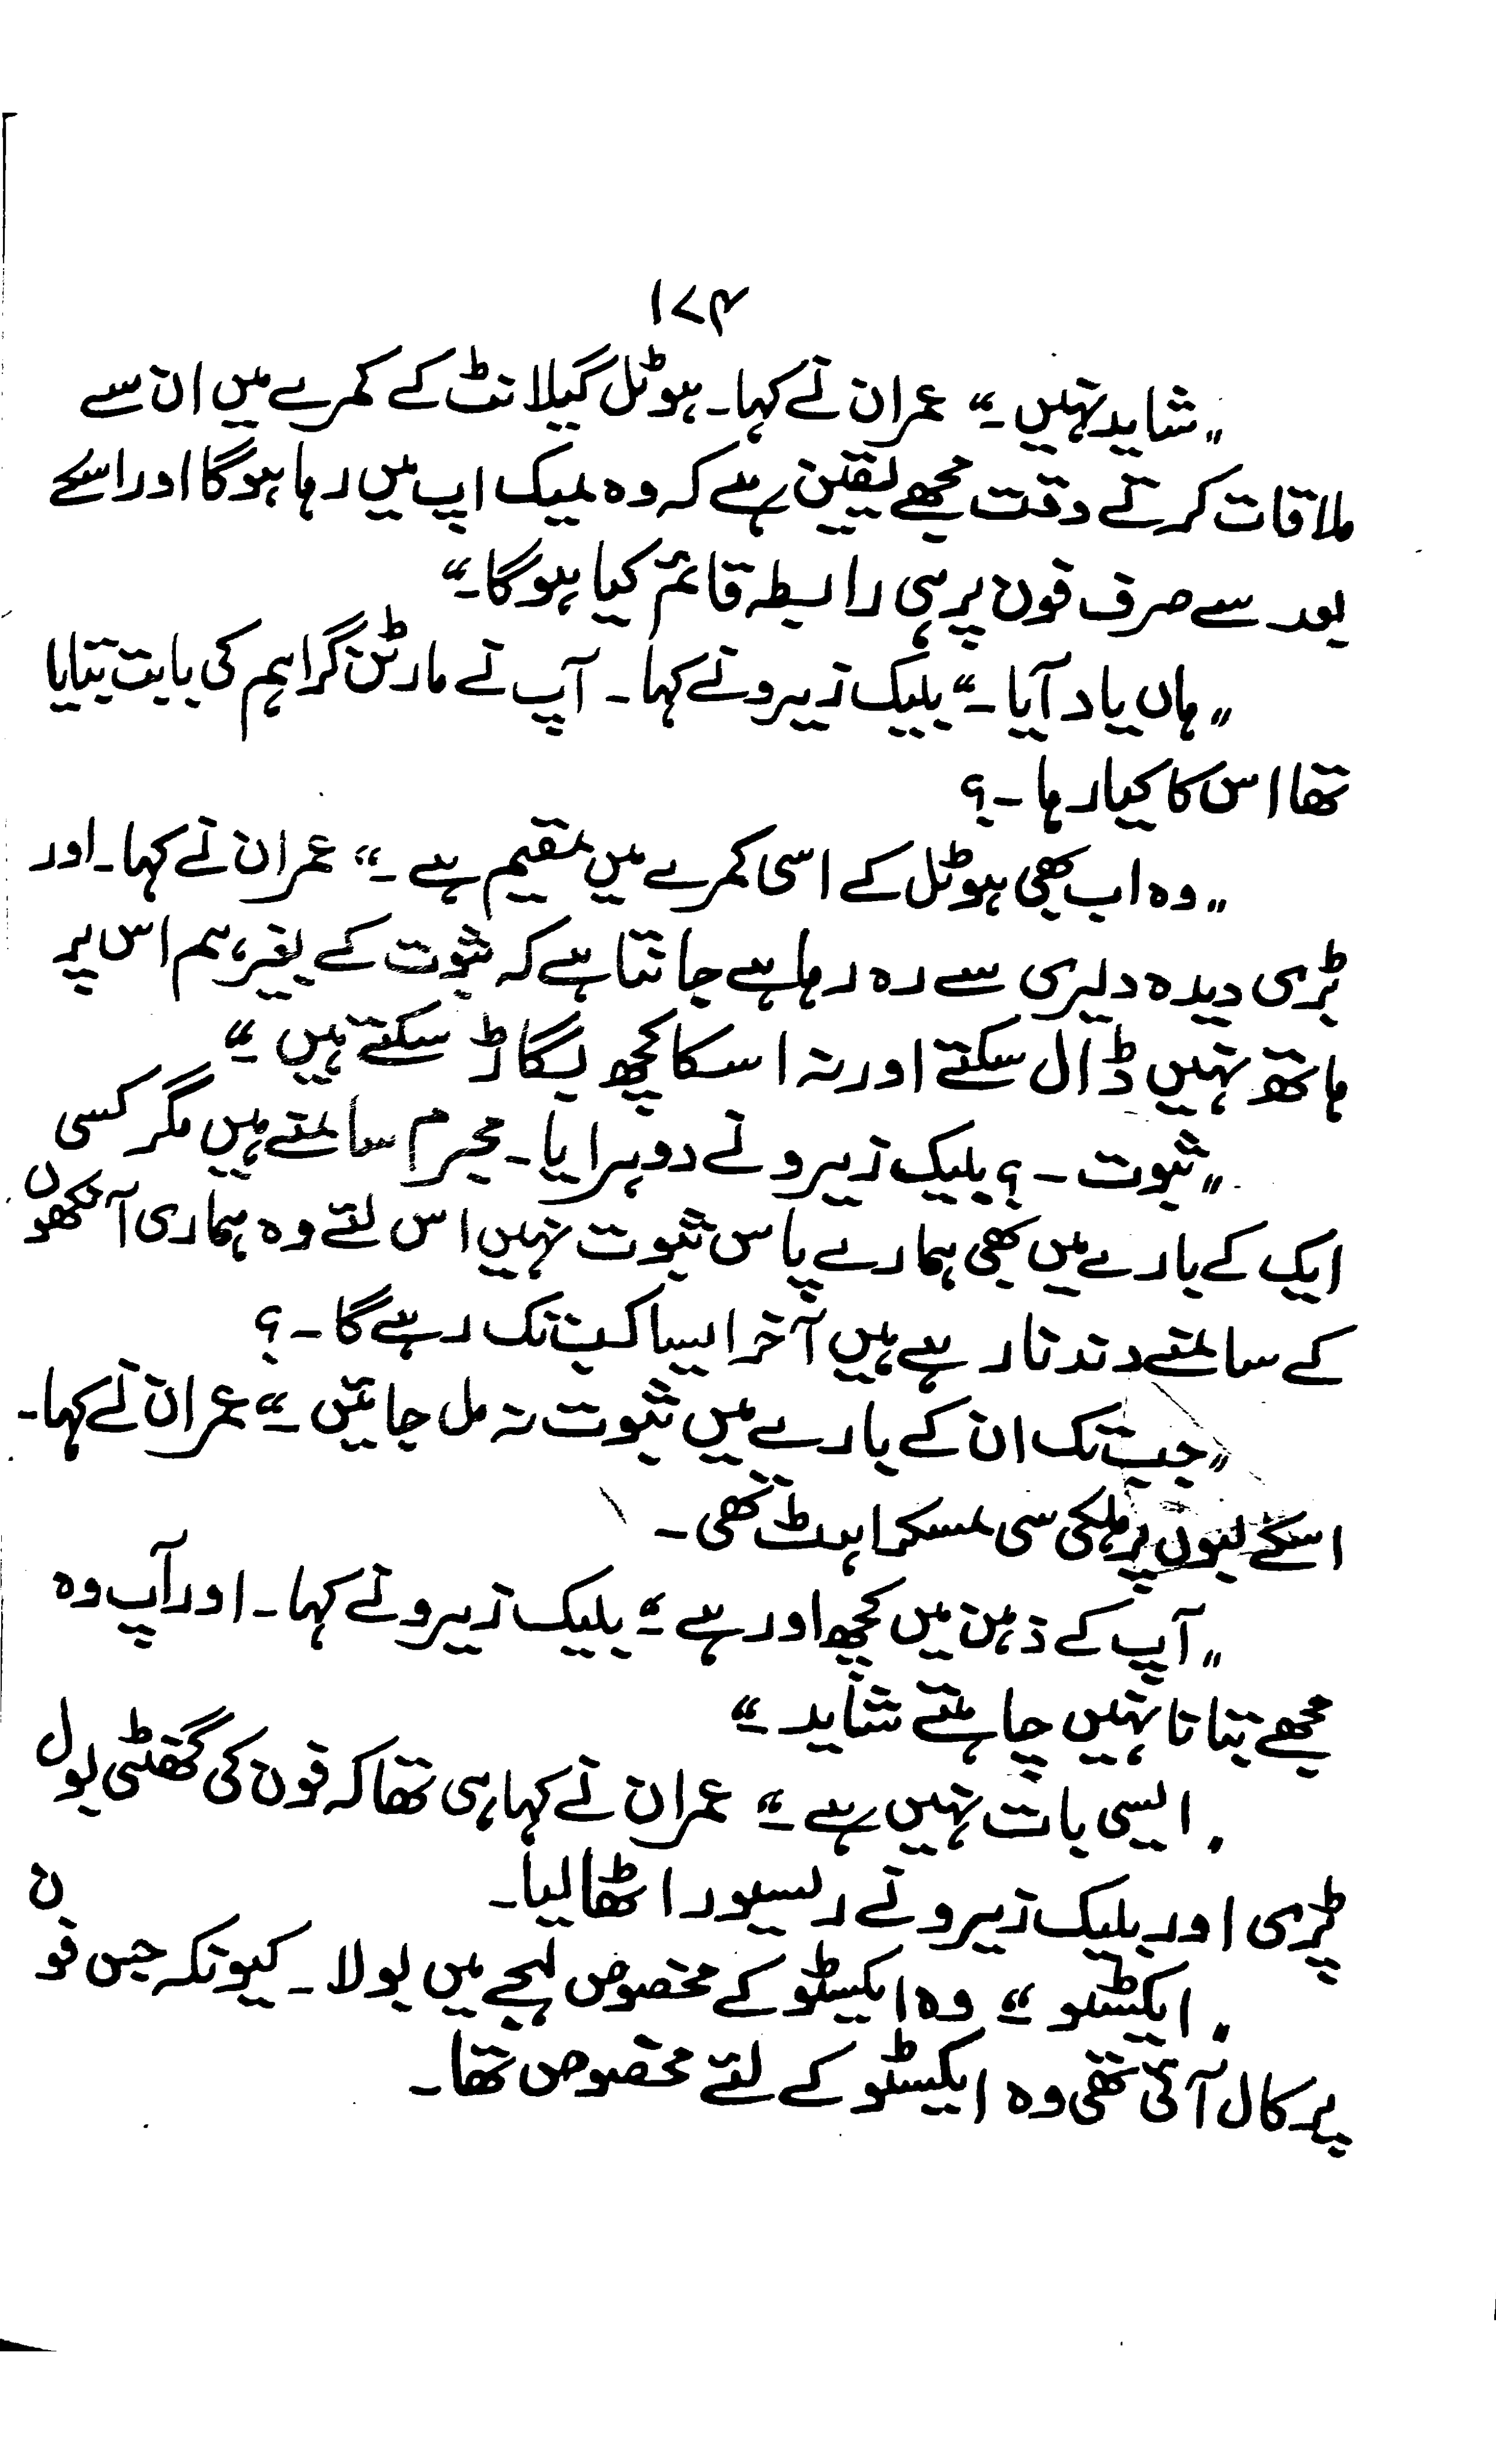 ۱۷۴
„ شاید نہیں ۔“ عمران نے کہا۔ ہوٹل گیلانٹ کے کمرے میں ان سے
ملاقات کرتے وقت مجھے یقین ہے کہ وہ میک اپ میں رہا ہوگا اور اسکے
بعد سے صرف فون پر ہی رابطہ قائم کیا ہوگا۔“
„ ہاں یاد آیا ۔“ بلیک زیرو نے کہا ۔ آپ نے مارٹن گراہم کی بابت بتایا
تھا اس کا کیا رہا ۔؟
„ وہ اب بھی ہوٹل کے اسی کمرے میں مقیم ہے ۔“ عمران نے کہا۔ اور
بڑی دیدہ دلیری سے رہ رہا ہے جانتا ہے کہ ثبوت کے بغیر، ہم اس پر
ہاتھ نہیں ڈال سکتے اور نہ اسکا کچھ بگاڑ سکتے ہیں ۔“
„ ثبوت ۔؟ بلیک زیرو نے دوہرایا۔ مجرم سامنے ہیں مگر کسی
ایک کے بارے میں بھی ہمارے پاس ثبوت نہیں اس لئے وہ ہماری آنکھوں
کے سامنے دندنا رہے ہیں آخر ایسا کب تک رہے گا ۔؟
„ جب تک ان کے بارے میں ثبوت نہ مل جائیں ۔“ عمران نے کہا۔
اسکے لبوں پر ہلکی سی مسکراہٹ تھی ۔
„ آپ کے ذہن میں کچھ اور ہے ۔“ بلیک زیرو نے کہا ۔ اور آپ وہ
مجھے بتانا نہیں چاہتے شاید ۔“
. ایسی بات نہیں ہے ۔“ عمران نے کہا ہی تھا کہ فون کی گھنٹی بول
پڑی اور بلیک زیرو نے رسیور اٹھا لیا۔
. ایکسٹو ۔“ وہ ایکسٹو کے مخصوص لہجے میں بولا ۔ کیونکہ جس فون
پر کال آئی تھی وہ ایکسٹو کے لئے مخصوص تھا۔